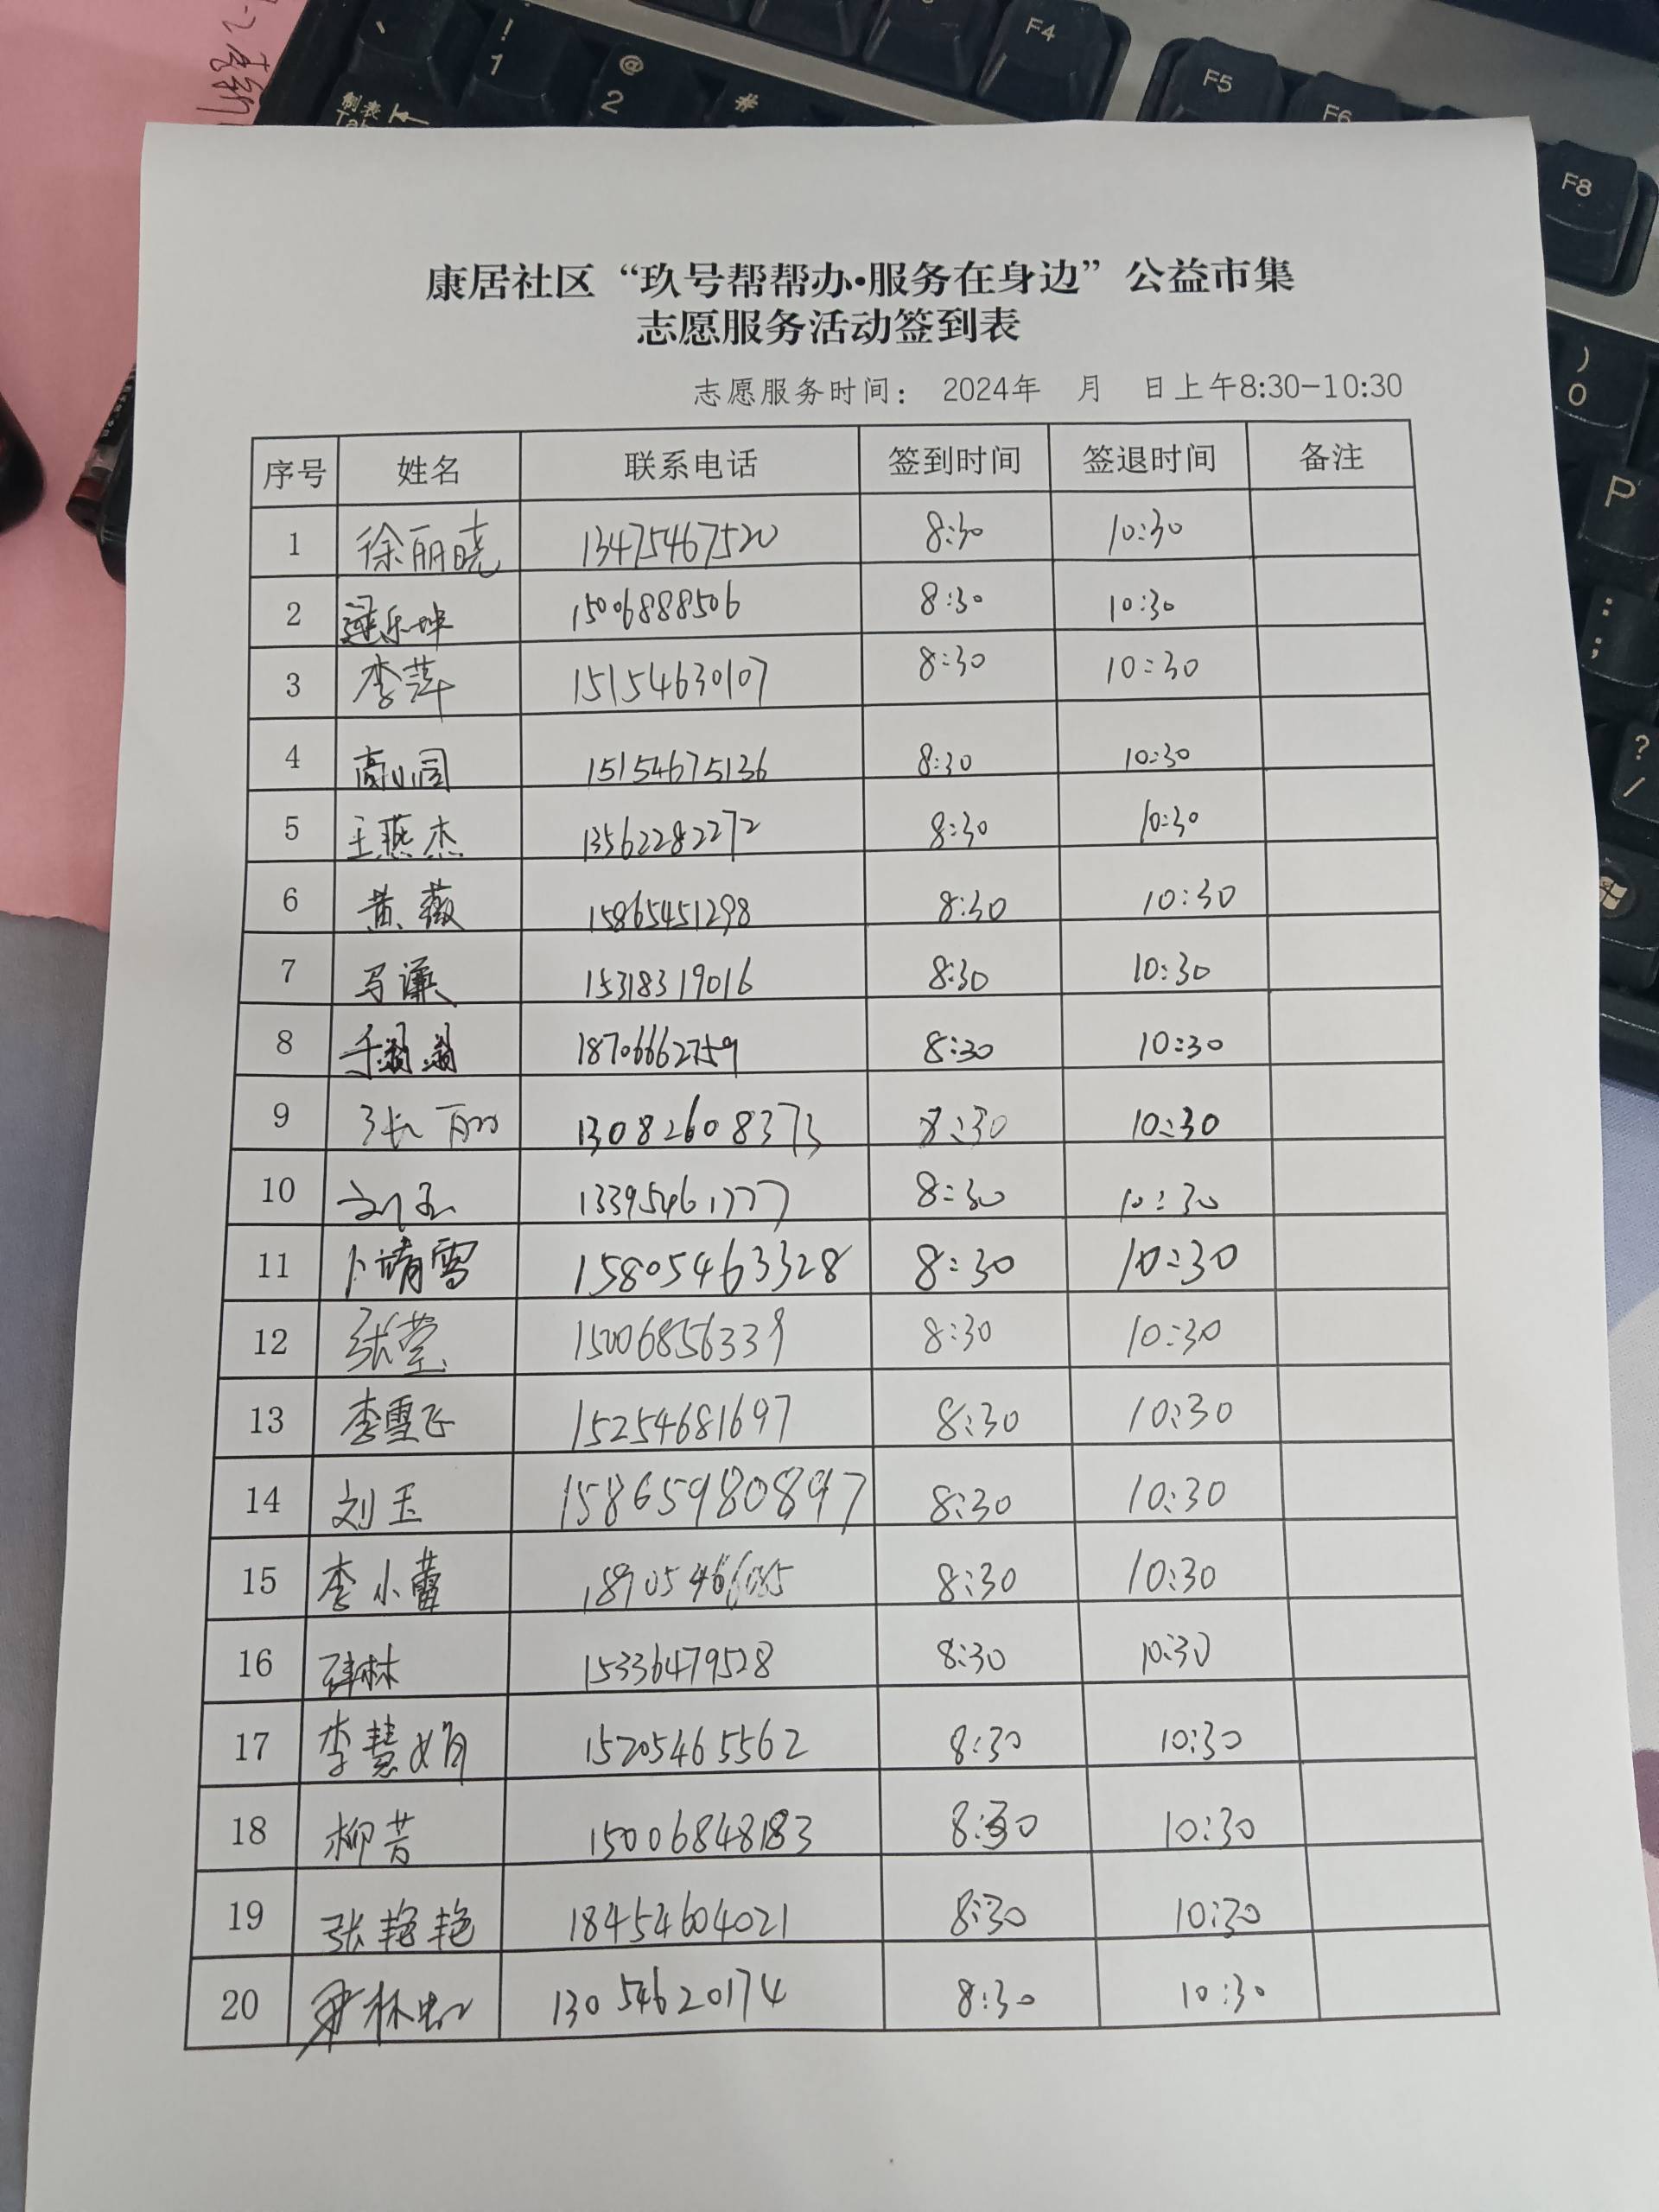 康居社区“玖号帮帮办·服务在身边”公益市集
志愿服务活动签到表
志愿服务时间： 2024年 月 日上午8:30-10:30
序号 姓名 联系电话 签到时间 签退时间 备注
1 徐丽晓 13475467520 8:30 10:30
2 15006888506 8:30 10:30
3 李萍 15154630107 8:30 10:30
4 15154675136 8:30 10:30
5 王燕杰 13562282272 8:30 10:30
6 黄薇 15865451298 8:30 10:30
7 马谦 15318319016 8:30 10:30
8 18706662759 8:30 10:30
9 张丽 13082608373 8:30 10:30
10 13395461777 8:30 10:30
11 卜靖雪 15805463328 8:30 10:30
12 张莹 15006856339 8:30 10:30
13 李雪飞 15254681697 8:30 10:30
14 刘玉 15865980897 8:30 10:30
15 李小蕾 8:30 10:30
16 15336479528 8:30 10:30
17 李慧娟 15205465562 8:30 10:30
18 柳青 15006848183 8:30 10:30
19 张艳艳 18454604021 8:30 10:30
20 13054620174 8:30 10:30
制表
Tab
!
1
@
2
#
F4
F5
F6
F8
)
0
P
:
;
?
/